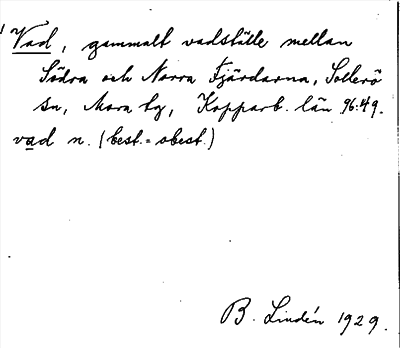 Vad, gammalt vadställe mellan
Södra och Norra Fjärdarna, Sollerö
sn, Mora tg, Kopparb. län 96:49.
vad n. (best. = obest.)
B. Lindén 1929.